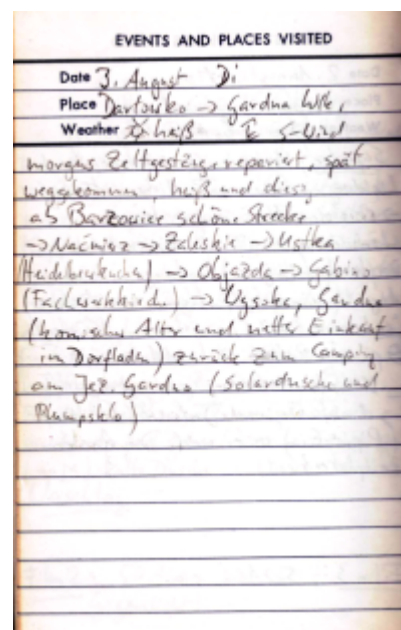 EVENTS AND PLACES VISITED
Date 3. August Di
Place Darłówko -> Gardna Wlk.
Weather heiß S-Wind
morgens Zeltgestänge repariert, spät
weggekommen, heiß und diesig
ab Barzowice schöne Strecke
-> Naćmierz -> Zaleskie -> Ustka
-> Objazda -> Gabino
(Fachwerkkirche) -> Wysoka, Gardna
(komischer Alter und netter Einkauf
im Dorfladen) zurück zum Camping
am Jez. Gardno (Solardusche und
Plumpsklo)